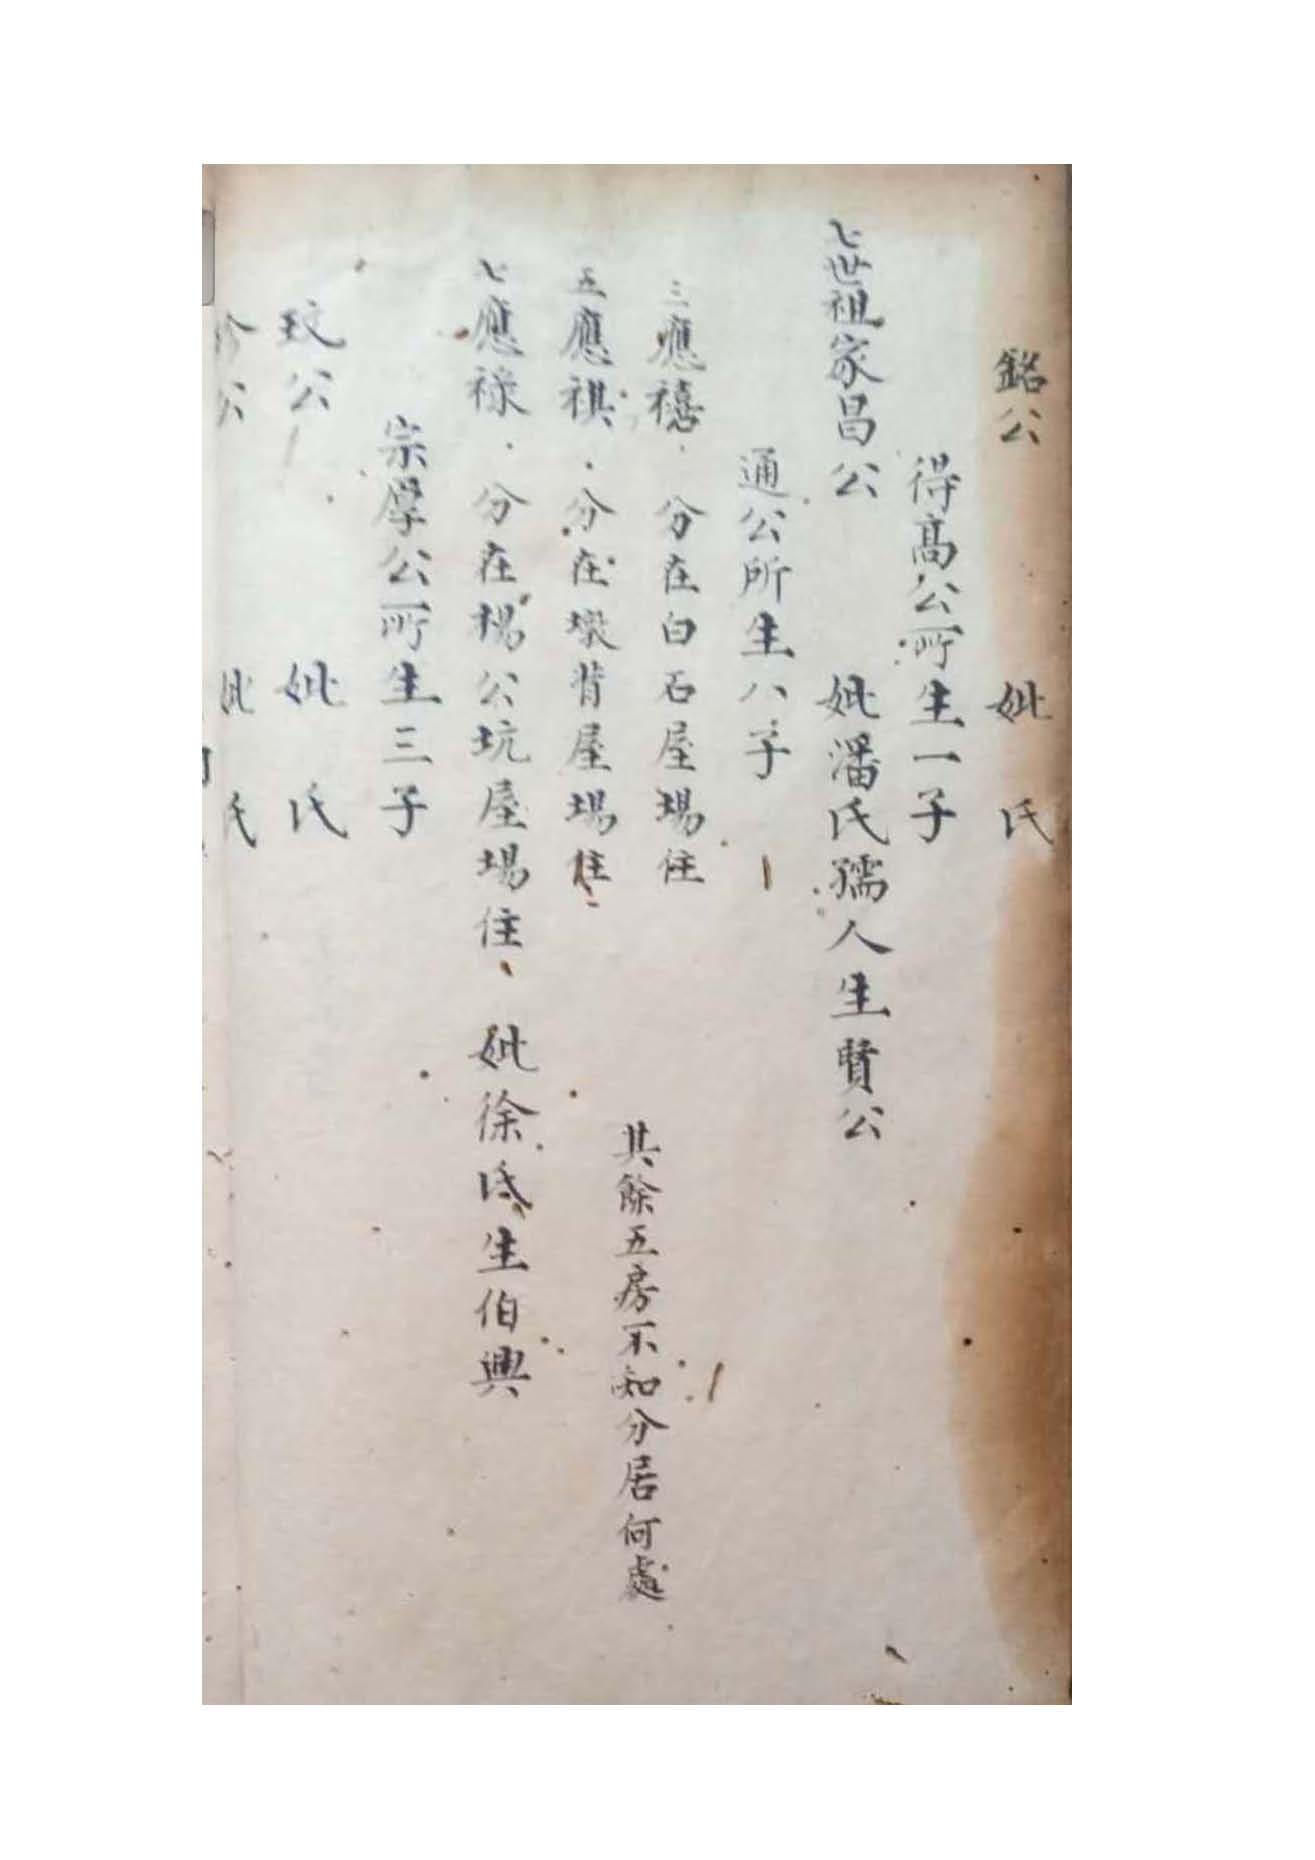 銘公 妣 氏
得高公所生一子
七世祖家昌公 妣潘氏孺人生賢公
通公所生八子
三應禧 分在白石屋場住
其餘五房不知分居何處
五應祺 分在墩背屋場住
七應祿 分在楊公坑屋場住 妣徐氏生伯興
宗學公所生三子
玟公 妣 氏
公 妣 氏